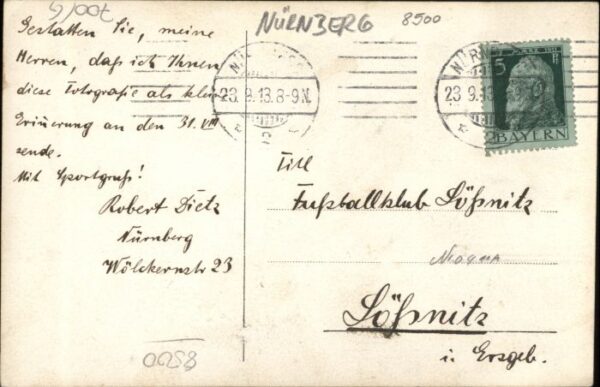 700/5
NÜRNBERG 8500
Gestatten Sie, meine
Herren, daß ich Ihnen
diese Fotografie als klein
Erinnerung an den 31. VIII
sende.
Mit Sportgruß!
Robert Dietz
Nürnberg
Wölckernstr 23
23.9.13.8-9N.
23.9.13
5 Pf
BAYERN
Titl
Fußballklub Lößnitz
Lößnitz
i. Erzgeb.
8500